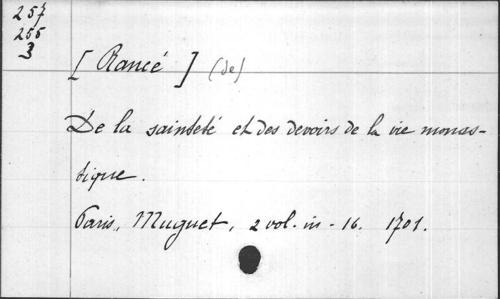 257
255
3
[Rancé] (de)
De la sainteté et des devoirs de la vie monas-
tique.
Paris, Muguet, 2 vol. in-16. 1701.